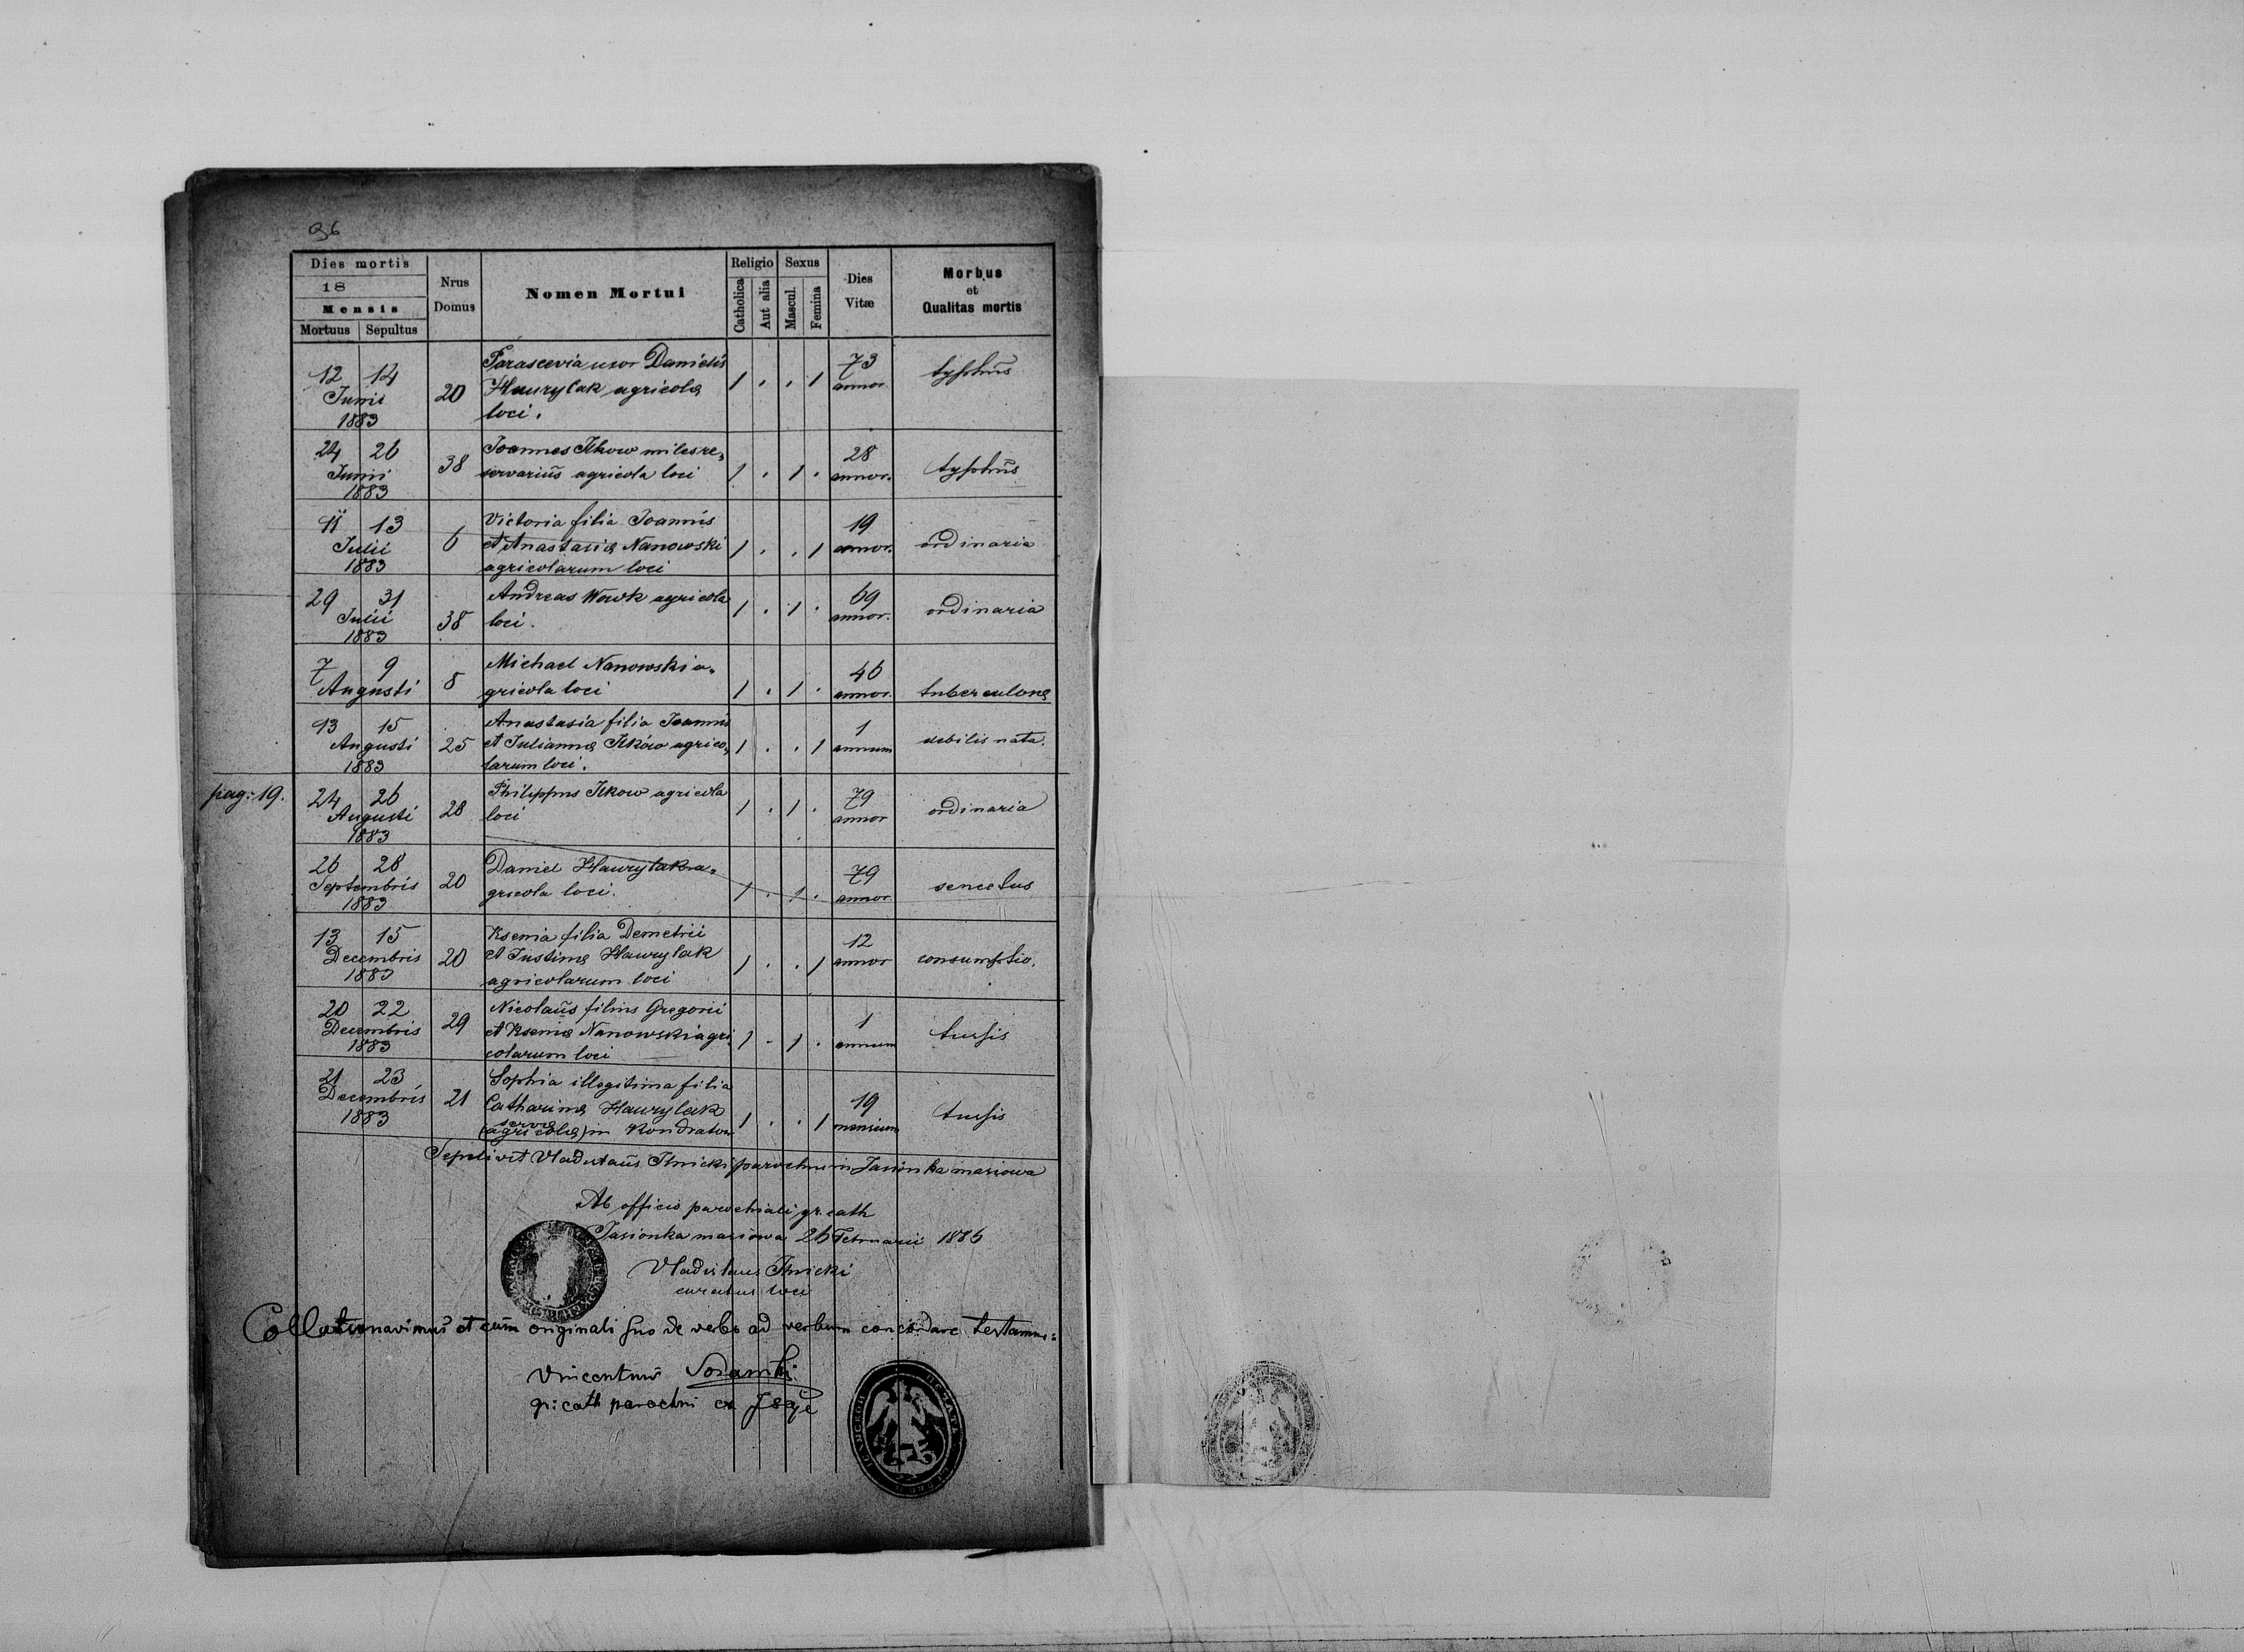 96
Dies mortis
18
Mensis
Mortuus Sepultus
Nrus
Domus
Nomen Mortui
Religio
Catholica
Aut alia
Sexus
Mascul.
Femina
Dies
Vitæ
Morbus
et
Qualitas mortis
12 14
Junii
1883
20
Parascevia uxor Danielis
Hawrylak agricolæ
loci.
1 . . 1
73
annor.
typhus
24 26
Junii
1883
38
Joannes Ilkow miles re„
servarius agricola loci
1 . 1 .
28
annor.
typhus
11 13
Julii
1883
6
Victoria filia Joannis
et Anastasiæ Nanowski
agricolarum loci
1 . . 1
19
annor.
ordinaria
29 31
Julii
1883
38
Andreas Wowk agricola
loci.
1 . 1 .
69
annor.
ordinaria
7 9
Augusti
8
Michael Nanowski a„
gricola loci
1 . 1 .
46
annor.
tuberculonæ
13 15
Augusti
1883
25
Anastasia filia Joannis
et Juliannæ Ilków agrico„
larum loci.
1 . . 1
1
annum
debilis nata.
pag: 19.
24 26
Augusti
1883
28
Philippus Ilkow agricola
loci
1 . 1 .
79
annor
ordinaria
26 28
Septembris
1883
20
Daniel Hawrylak a„
gricola loci.
1 . 1 .
79
annor
senectus
13 15
Decembris
1883
20
Ksenia filia Demetrii
et Justinæ Hawrylak
agricolarum loci
1 . . 1
12
annor
consumptio.
20 22
Decembris
1883
29
Nicolaus filius Gregorii
et Kseniæ Nanowski agri
colarum loci
1 . 1 .
1
annum
tussis
21 23
Decembris
1883
21
Sophia illegitima filia
Catharinæ Hawrylak
servæ
(agricolæ) in Kondratow
1 . . 1
19
mensium
tussis
Sepelivit Vladislaus Ilnicki parochus in Jasionka masiowa
Ab officio parochiali gr. cath
Jasionka masiowa 26 Februarii 1886
Vladislaus Ilnicki
curatus loci
Collationavimus et cum originali suo de verbo ad verbum concordare testamur:
Vincentius
gr: cath parochus ex Isaje